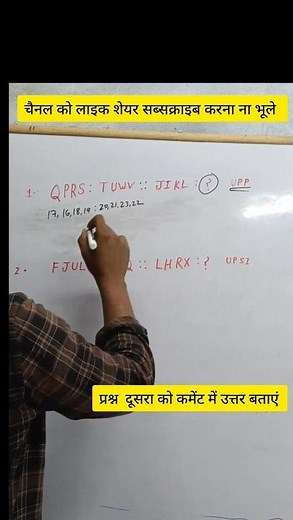 चैनल को लाइक शेयर सब्सक्राइब करना ना भूले
1. QPRS : TUWV :: JIKL : ? UPP
17, 16, 18, 19 : 20, 21, 23, 22
2. FJUL Q :: LHRX : ? UPSI
प्रश्न दूसरा को कमेंट में उत्तर बताएं